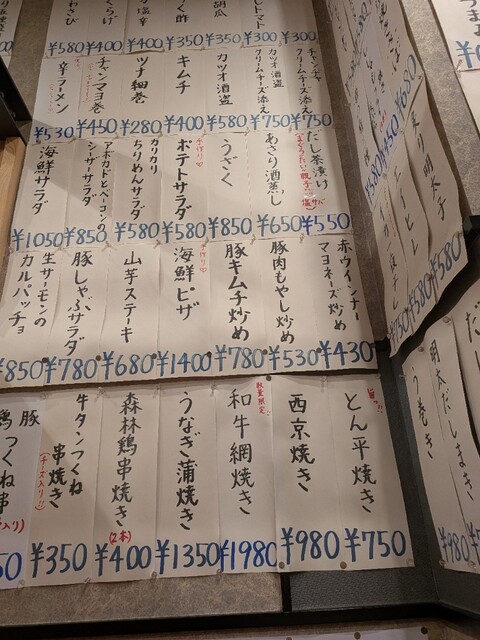 わさび
¥580
くらげ
¥400
塩辛
¥400
く酢
¥350
胡瓜
¥350
しトマト
¥300
¥300
辛ラーメン
¥530
チャンマヨ巻
¥450
ツナ細巻
¥280
キムチ
¥400
カツオ酒盗
¥580
カツオ酒盗
クリームチーズ添え
¥750
チャンヂャ
クリームチーズ添え
¥750
海鮮サラダ
¥1050
アボカドとベーコンの
シーザーサラダ
¥850
カリカリ
ちりめんサラダ
¥580
手作り♡
ポテトサラダ
¥580
うざく
¥850
あさり酒蒸し
¥650
だし茶漬け
¥550
生サーモンの
カルパッチョ
¥850
豚しゃぶサラダ
¥780
山芋ステーキ
¥680
手作り♡
海鮮ピザ
¥1400
豚キムチ炒め
¥780
豚肉もやし炒め
¥530
赤ウインナー
マヨネーズ炒め
¥430
豚
鶏つくね串
牛タンつくね
串焼き
(チーズ入り!!)
¥350
森林鶏串焼き
(2本)
¥400
うなぎ蒲焼き
¥1350
数量限定
和牛網焼き
¥1980
西京焼き
¥980
旨っ!!
とん平焼き
¥750
明太子
¥580
¥580
う巻き
¥980
明太だしまき